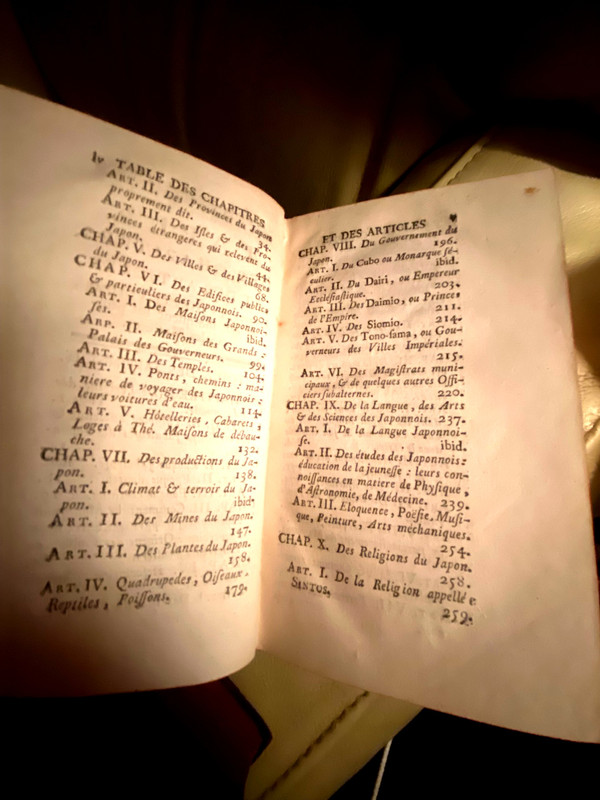 iv TABLE DES CHAPITRES
ART. II. Des Provinces du Japon
proprement dit. 34.
ART. III. Des Isles & des Pro-
vinces étrangeres qui relevent du
Japon. 44.
CHAP. V. Des Villes & des Villages
du Japon. 68.
CHAP. VI. Des Edifices publics
& particuliers des Japonnois. 90.
ART. I. Des Maisons Japonnoi-
ses. ibid.
ARP. II. Maisons des Grands :
Palais des Gouverneurs. 99.
ART. III. Des Temples. 104.
ART. IV. Ponts, chemins : ma-
niere de voyager des Japonnois :
leurs voitures d'eau. 114.
ART. V. Hôtelleries, Cabarets,
Loges à Thé. Maisons de débau-
che. 132.
CHAP. VII. Des productions du Ja-
pon. 138.
ART. I. Climat & terroir du Ja-
pon. ibid.
ART. II. Des Mines du Japon.
147.
ART. III. Des Plantes du Japon.
158.
ART. IV. Quadrupedes, Oiseaux,
Reptiles, Poissons. 179.
ET DES ARTICLES v
CHAP. VIII. Du Gouvernement du
Japon. 196.
ART. I. Du Cubo ou Monarque sé-
culier. ibid.
ART. II. Du Dairi, ou Empereur
Ecclésiastique. 203.
ART. III. Des Daimio, ou Princes
de l'Empire. 211.
ART. IV. Des Siomio. 214.
ART. V. Des Tono-sama, ou Gou-
verneurs des Villes Impériales.
215.
ART. VI. Des Magistrats muni-
cipaux, & de quelques autres Offi-
ciers subalternes. 220.
CHAP. IX. De la Langue, des Arts
& des Sciences des Japonnois. 237.
ART. I. De la Langue Japonnoi-
se. ibid.
ART. II. Des études des Japonnois :
éducation de la jeunesse : leurs con-
noissances en matiere de Physique,
d'Astronomie, de Médecine. 239.
ART. III. Eloquence, Poësie, Musi-
que, Peinture, Arts méchaniques.
254.
CHAP. X. Des Religions du Japon.
258.
ART. I. De la Religion appellée
SINTOS. 259.